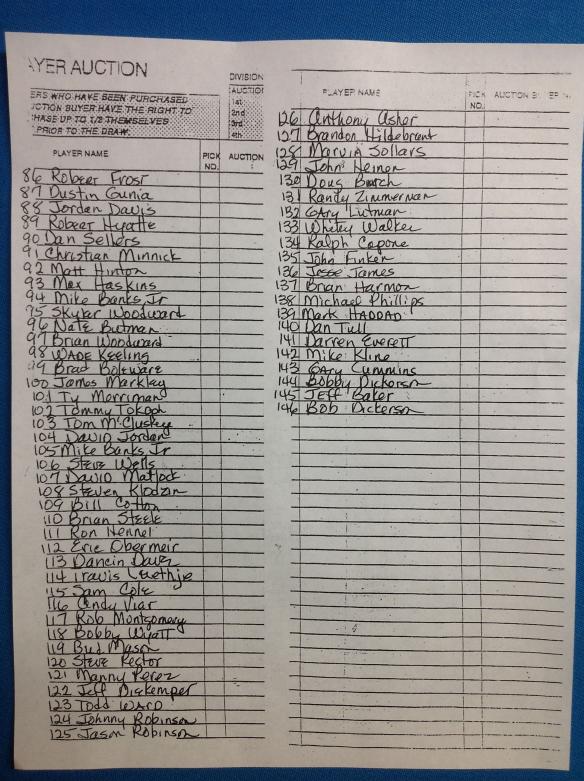 AYER AUCTION
DIVISION
ERS WHO HAVE BEEN PURCHASED
CTION BUYER HAVE THE RIGHT TO
HASE UP TO 1/2 THEMSELVES
PRIOR TO THE DRAW.
AUCTIO
1st
2nd
3rd
4th
PLAYER NAME PICK NO. AUCTION
86 Robert Frost
87 Dustin Gunia
88 Jordan Davis
89 Robert Hyatte
90 Dan Sellers
91 Christian Minnick
92 Matt Hinton
93 Max Haskins
94 Mike Banks Jr
95 Skyler Woodward
96 Nate Butman
97 Brian Woodward
98 WADE Keeling
99 Brad Boltware
100 James Marklay
101 Ty Merriman
102 Tommy Tokoph
103 Tom McCluskey
104 David Jordan
105 Mike Banks Jr
106 Steve Wells
107 David Matlock
108 Steven Klodzin
109 Bill Cotton
110 Brian Steele
111 Ron Hennel
112 Eric Obermeir
113 Dancin Dave
114 Travis
115 Sam Cole
116 Cindy Viar
117 Rob Montgomery
118 Bobby Wyatt
119 Bud Mason
120 Steve Rector
121 Manny Perez
122 Jeff Diekemper
123 Todd WARD
124 Johnny Robinson
125 Jason Robinson
PLAYER NAME PICK NO. AUCTION
126 Anthony Asher
127 Brandon Hildebrant
128 Marvin Sollars
129 John Heiner
130 Doug Burch
131 Randy Zimmerman
132 GAry Lutman
133 Whitey Walker
134 Ralph Capone
135 John Finken
136 Jesse James
137 Brian Harmon
138 Michael Phillips
139 Mark HADDAD
140 Dan Tull
141 Darren Everett
142 Mike Kline
143 GAry Cummins
144 Bobby Dickerson
145 Jeff Baker
146 Bob Dickerson